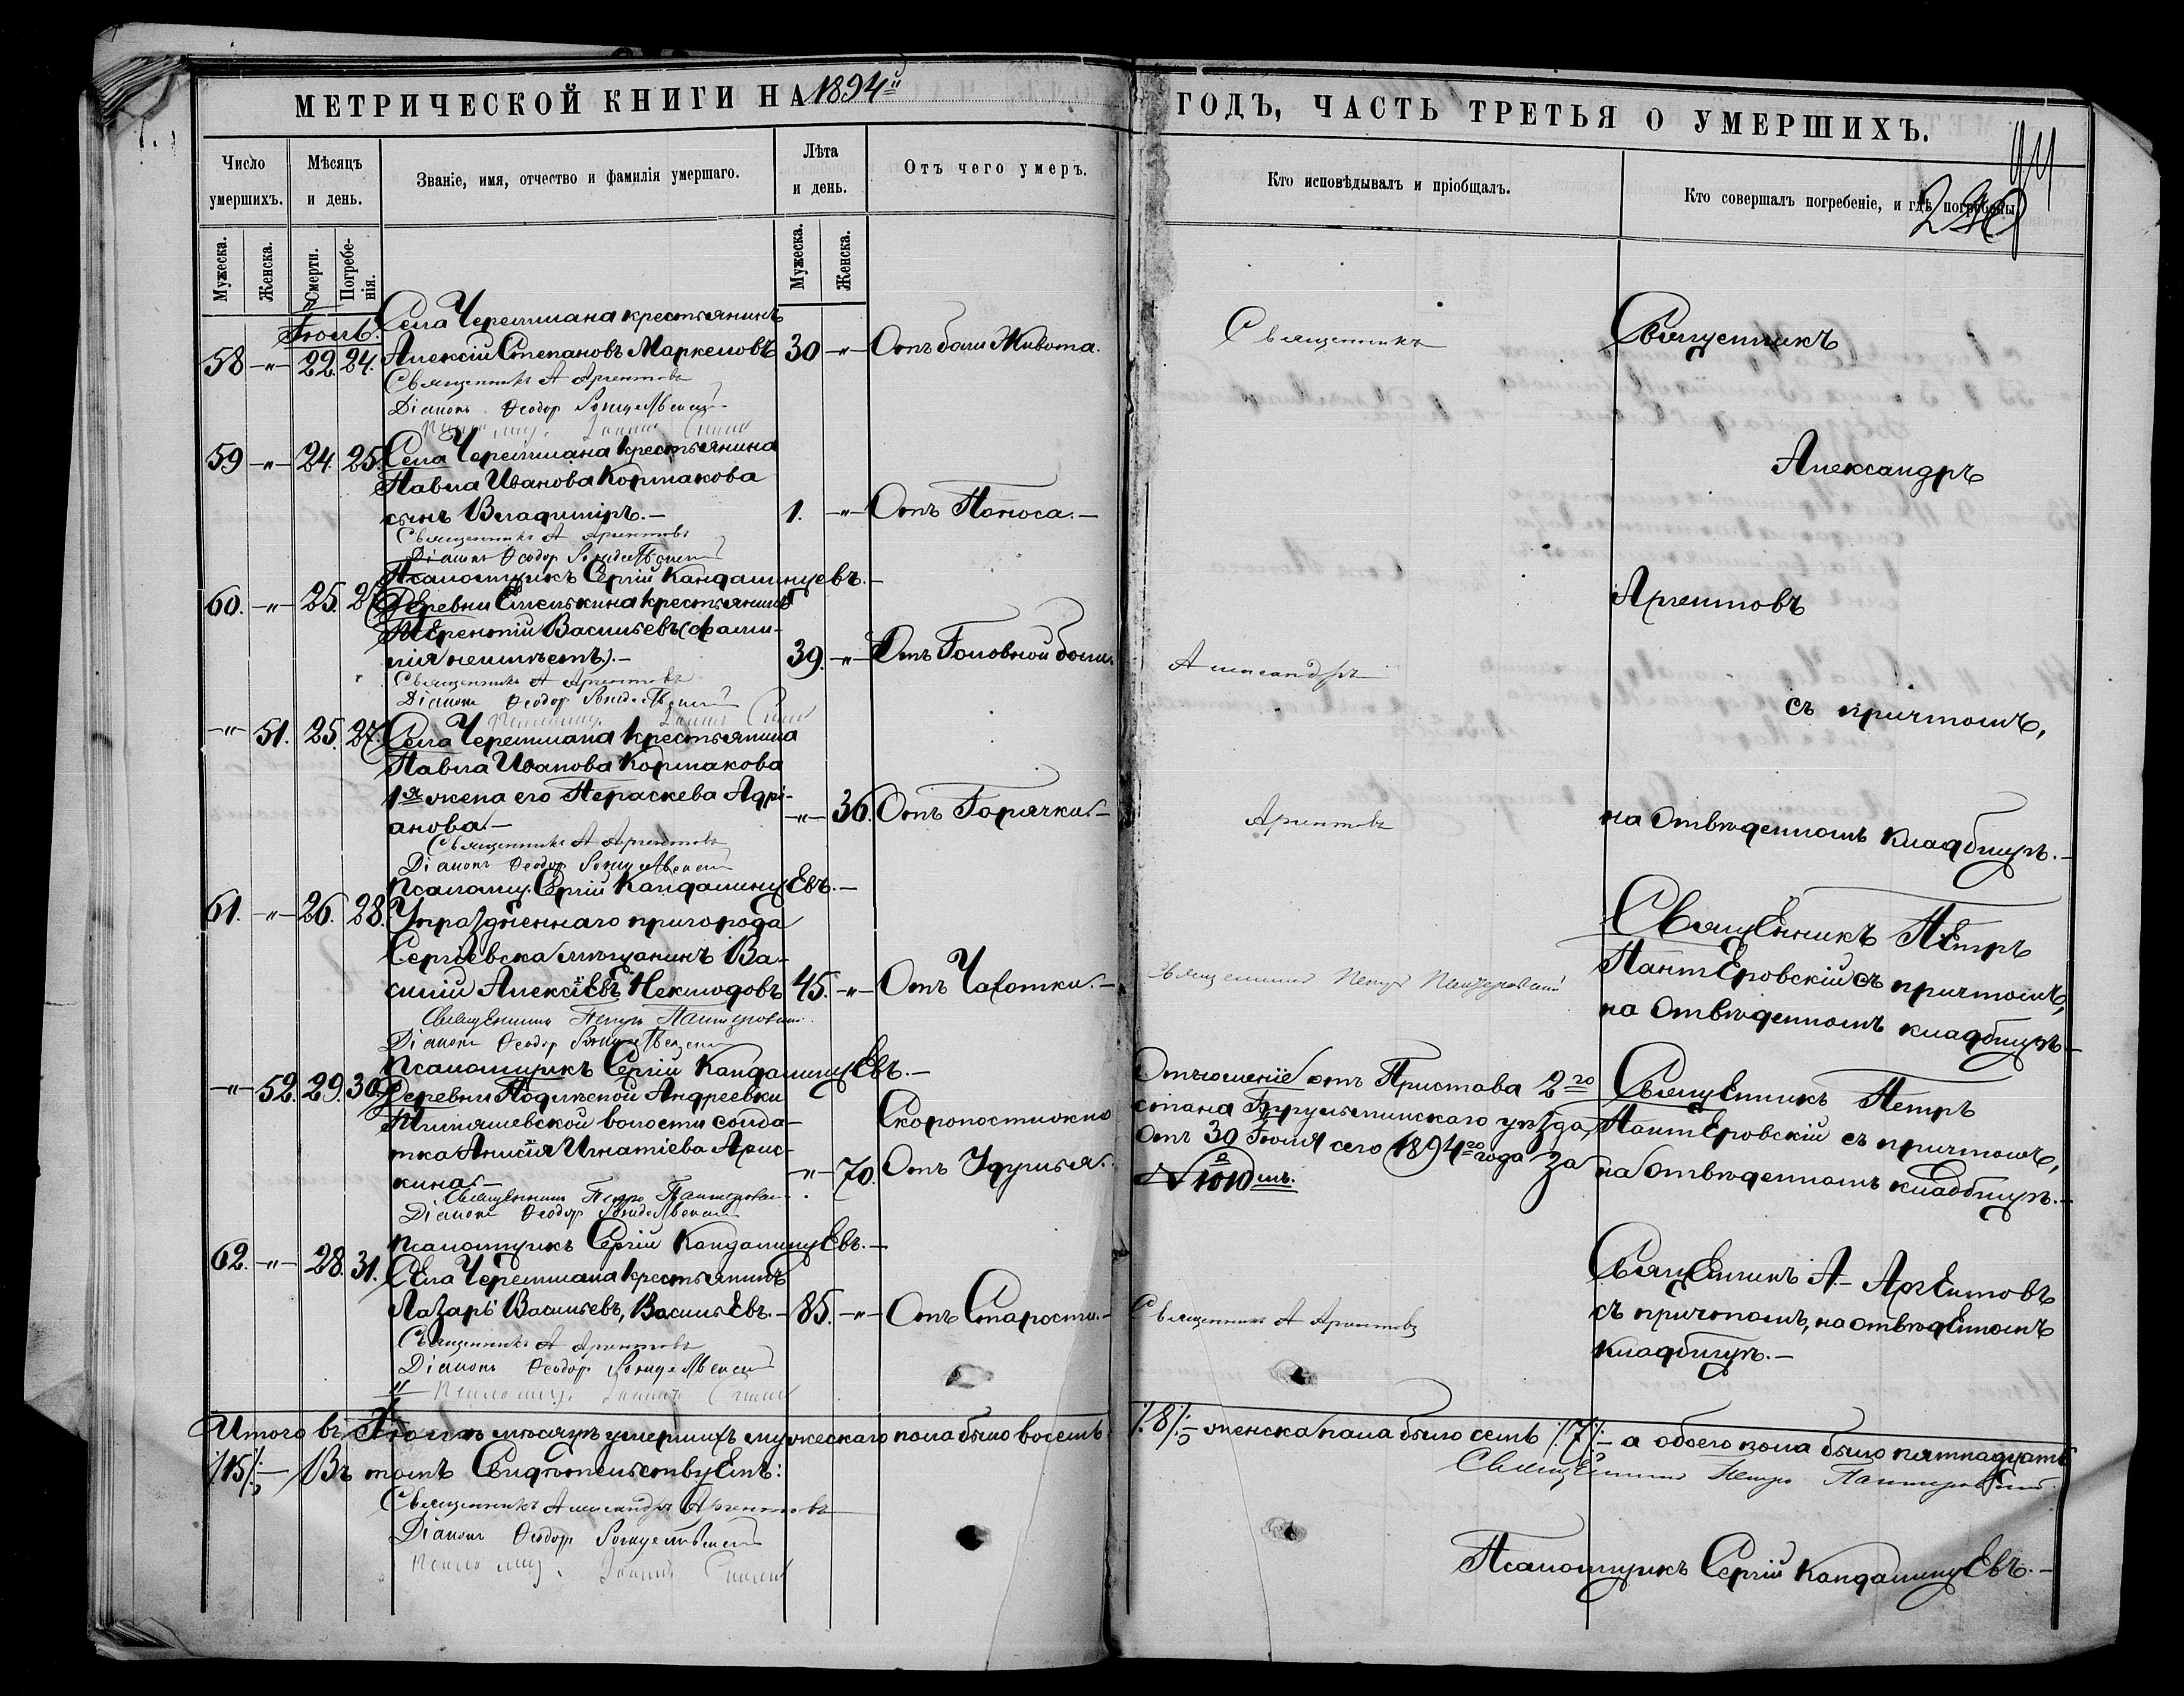 МЕТРИЧЕСКОЙ КНИГИ НА 1894й ГОДЪ, ЧАСТЬ ТРЕТЬЯ О УМЕРШИХЪ.
240
Число умершихъ. Мѣсяцъ и день. Званіе, имя, отчество и фамилія умершаго. Лѣта и день. Отъ чего умеръ. Кто исповѣдывалъ и пріобщалъ. Кто совершалъ погребеніе, и гдѣ погребены
Мужеска. Женска. Смерти. Погребенія. Мужеска. Женска.
Іюль.
Села Черемшана крестьянинъ
58 -"- 22. 24. Алексій Степановъ Маркеловъ 30 -"- Отъ боли Живота. Священникъ Священникъ
Священникъ А Аргентовъ
Діаконъ Ѳеодор
59 -"- 24. 25. Села Черемшана крестьянина Александръ
Павла Иванова Кормакова
сынъ Владиміръ.- 1. -"- Отъ Поноса.-
Священникъ А Аргентовъ
Діаконъ Ѳеодор
Псаломщикъ Сергій Кандалинцевъ.-
60. -"- 25. Деревни Емелькина крестьянинъ Аргентовъ
Терентій Васильевъ (фами-
лія неимѣетъ).- 39. -"- Отъ Головной боли. Александръ
Священникъ А Аргентовъ
Діаконъ Ѳеодор
-"- 51. 25. 27. Села Черемшана крестьянина съ причтомъ,
Павла Иванова Кормакова
1я жена его Параскева Адрі-
анова.- -"- 36. Отъ Горячки.- Аргентовъ на отведенномъ кладбищѣ.-
Священникъ А Аргентовъ
Діаконъ Ѳеодор
Псаломщ. Сергій Кандалинцевъ.-
61. -"- 26. 28. Упраздненнаго пригорода Священникъ Петръ
Сергіевска мѣщанинъ Ва-
силій Алексіевъ Неклюдовъ 45. -"- Отъ Чахотки.- Священникъ Петръ Пантеровскій Пантеровскій съ причтомъ,
Священникъ Петръ Пантеровскій на отведенномъ кладбищѣ.-
Діаконъ Ѳеодор
Псаломщикъ Сергій Кандалинцевъ.-
-"- 52. 29. 30. Деревни Подлѣсной Андреевки Скоропостижно Отношеніе отъ Пристава 2го Священникъ Петръ
волости солда- стана Бугульминскаго уѣзда, Пантеровскій съ причтомъ,
тка Анисія Игнатіева Арис- отъ 30 Іюля сего 1894го года за на отведенномъ кладбищѣ.-
кина.- -"- 70. Отъ Удушья. № 1010мъ.
Священникъ Петръ Пантеровскій
Діаконъ Ѳеодор
Псаломщикъ Сергій Кандалинцевъ.-
62. -"- 28. 31. Села Черемшана крестьянинъ Священникъ А.- Аргентовъ
Лазарь Васильевъ, Васильевъ.- 85. -"- Отъ Старости.- Священникъ А Аргентовъ съ причтомъ, на отведенномъ
Священникъ А Аргентовъ кладбищѣ.-
Діаконъ Ѳеодор
Итого въ Іюлѣ мѣсяцѣ умершихъ мужескаго пола было восемь /:8:/- женска пола было семь /:7:/- а обоего пола было пятнадцать
/:15:/- Въ томъ Свидѣтельствуемъ:
Священникъ Петръ Пантеровскій
Священникъ Александръ Аргентовъ
Діаконъ Ѳеодор
Псаломщикъ Сергій Кандалинцевъ.-